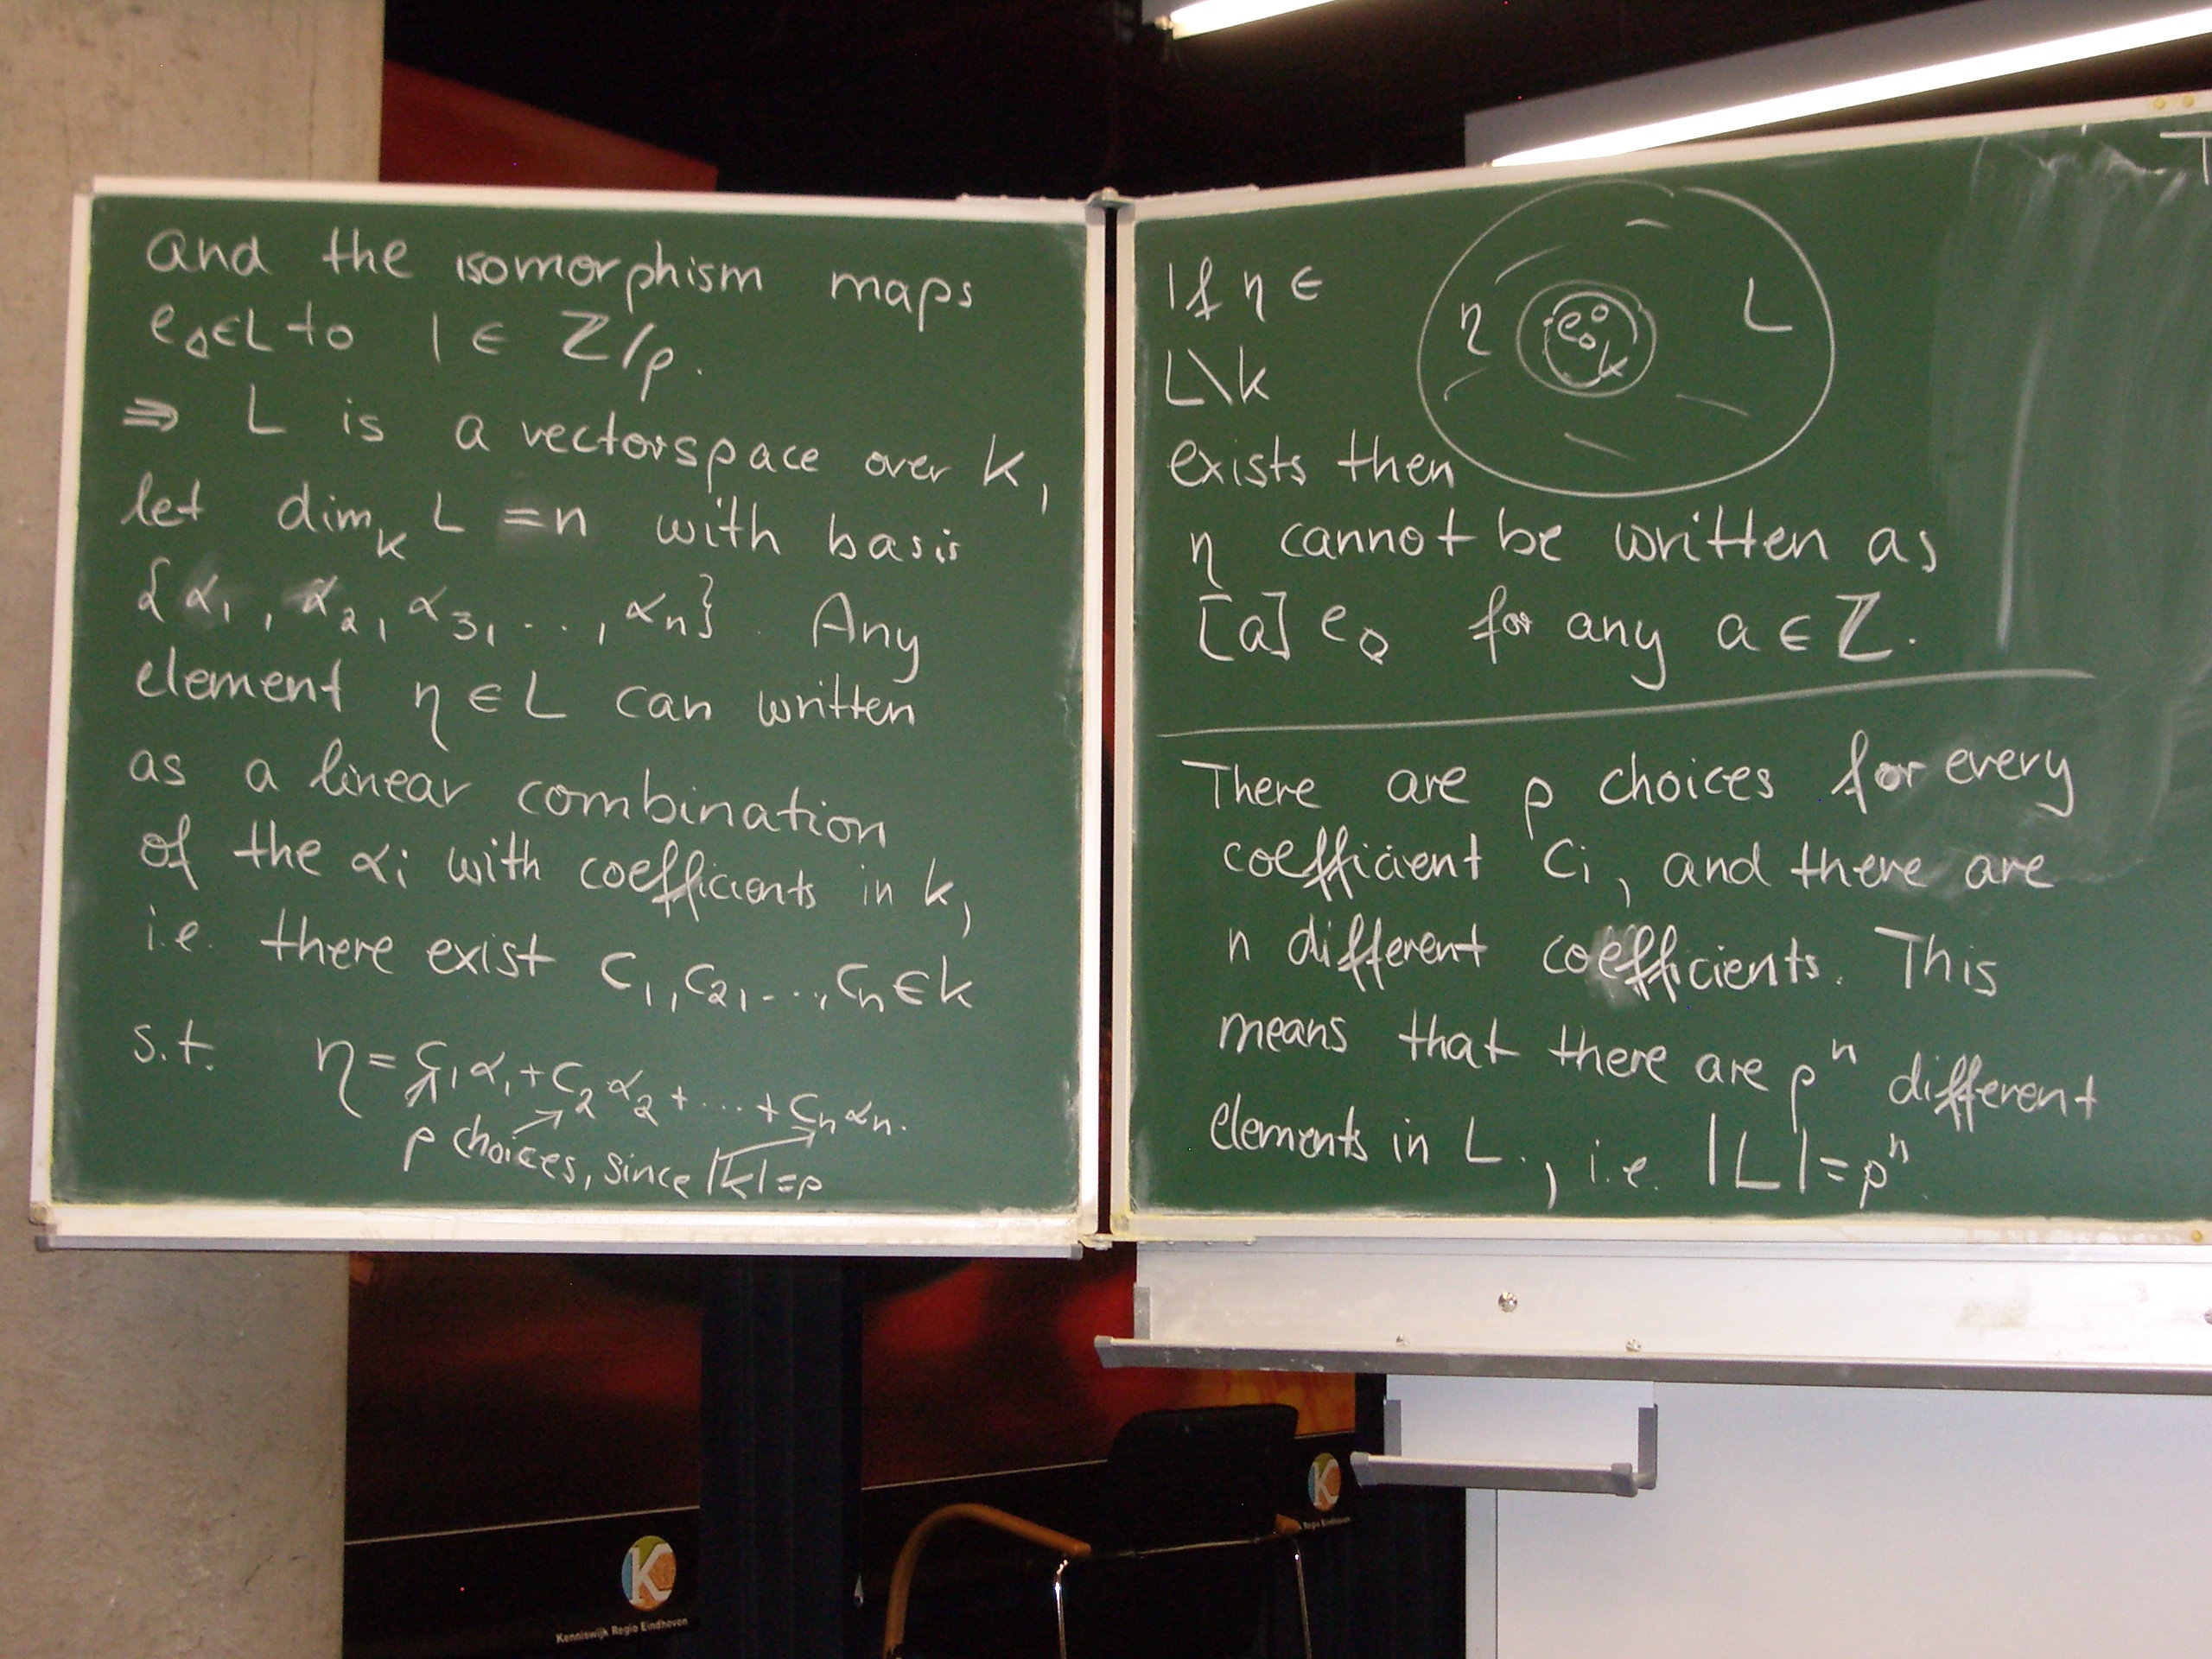 and the isomorphism maps
e₀∈L to 1 ∈ ℤ/p.
⇒ L is a vectorspace over k,
let dimₖ L = n with basis
{α₁, α₂, α₃, ..., αₙ}. Any
element η ∈ L can written
as a linear combination
of the αᵢ with coefficients in k,
i.e. there exist c₁, c₂, ..., cₙ ∈ k
s.t. η = c₁α₁ + c₂α₂ + ... + cₙαₙ.
p choices, since |k| = p
If η ∈
L\k
exists then
η cannot be written as
[a] e₀ for any a ∈ ℤ.
η e₀ 0 k L
There are p choices for every
coefficient cᵢ, and there are
n different coefficients. This
means that there are pⁿ different
elements in L., i.e. |L| = pⁿ.
K
Kenniswijk Regio Eindhoven
K
Regio Eindhoven